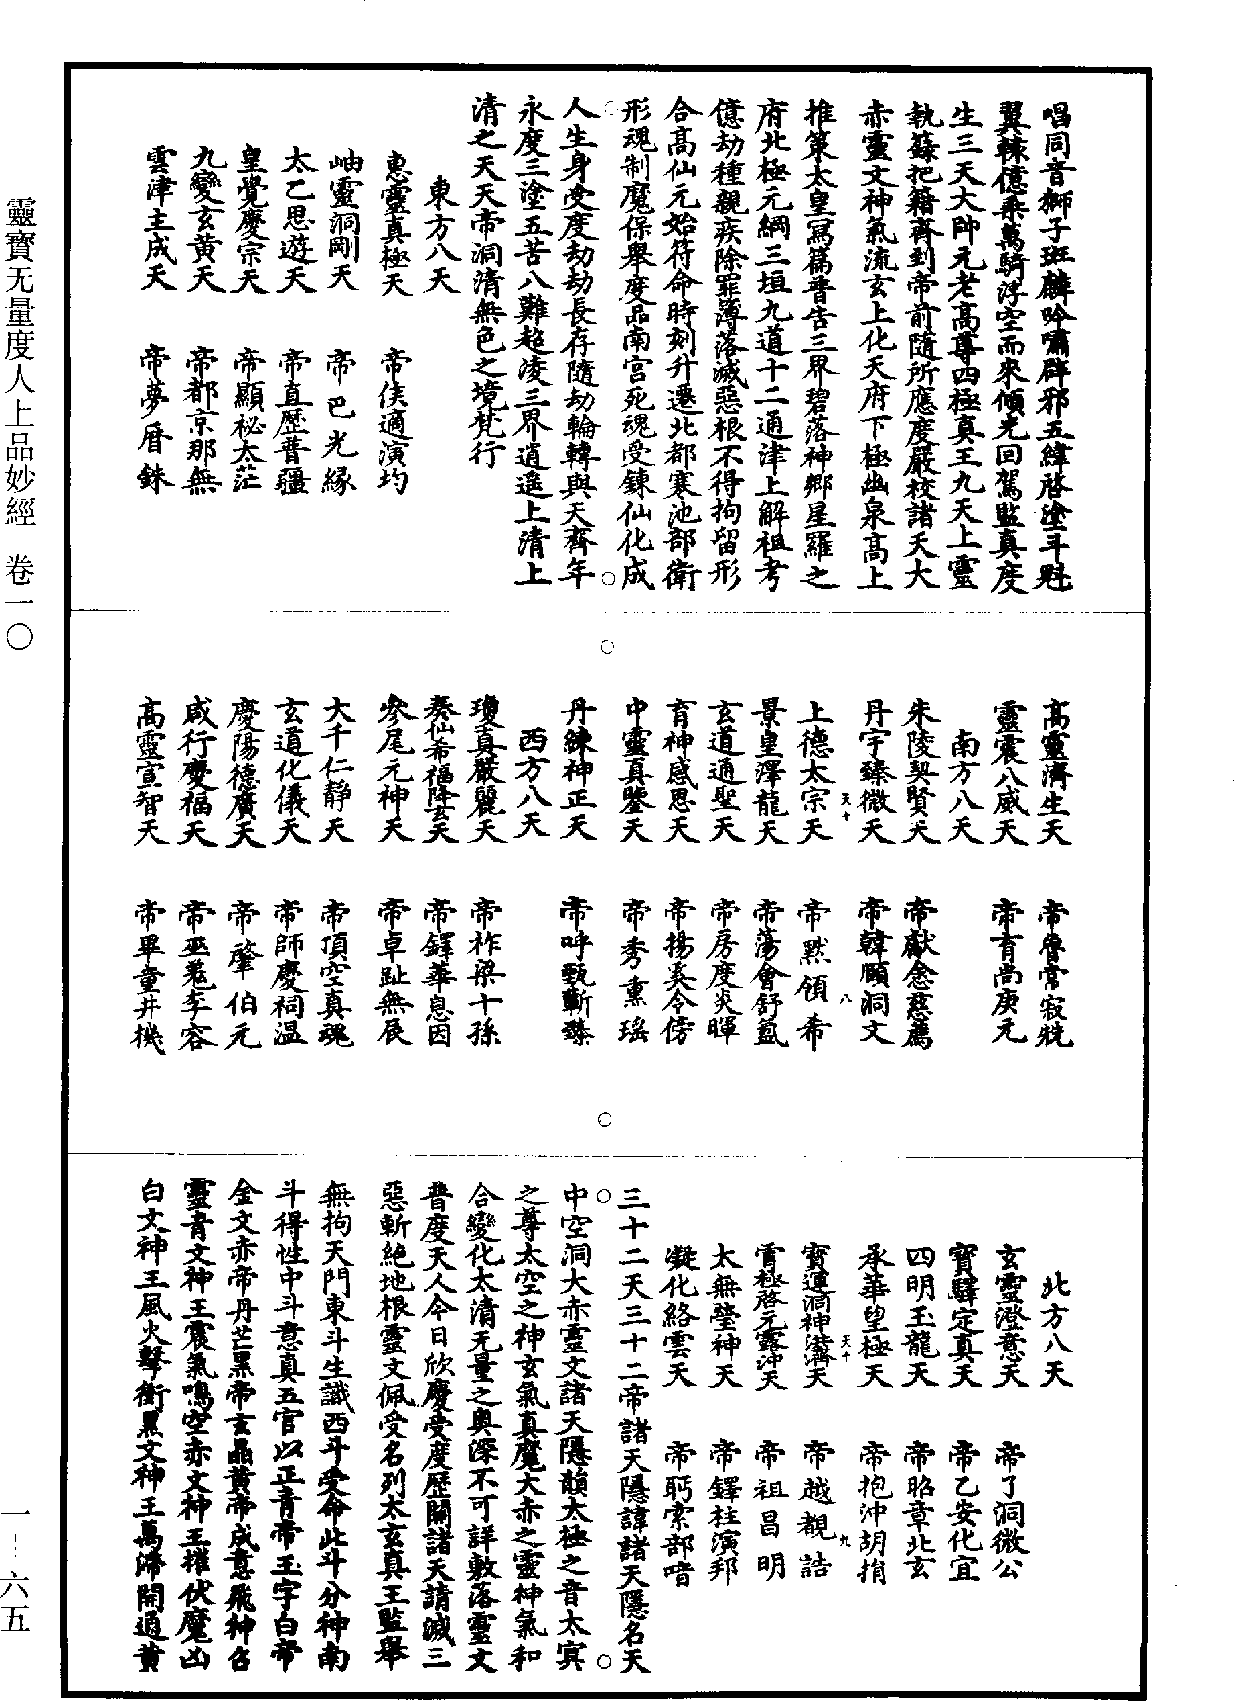 唱同音獅子班麟吟嘯辟邪五緯啓塗斗魁
翼轅億乘萬騎浮空而來傾光回駕監真度
生三天大帥元老高尊四極真王九天上靈
執籙把籍齊到帝前隨所應度嚴校諸天大
赤靈文神氣流玄上化天府下極幽泉高上
推策太皇寫篇普告三界碧落神鄉星羅之
府北極元綱三垣九道十二通津上解祖考
億劫種親疾除罪薄落滅惡根不得拘留形
合高仙元始符命時刻升遷北都寒池部衛
形魂制魔保舉度品南宮死魂受鍊仙化成
人生身受度劫劫長存隨劫輪轉與天齊年
永度三塗五苦八難超凌三界逍遙上清上
清之天天帝洞清無色之境梵行
東方八天
惠靈真極天　帝俟適演圴
岫靈洞剛天　帝巴光緣
太乙思遊天　帝直歷普疆
皇覺慶宗天　帝顯祕太茫
九變玄黃天　帝都京那無
雲津主成天　帝夢厝銖
高靈濟生天　帝魯常寂兟
靈震八威天　帝育尚庚元
南方八天
朱陵契賢天　帝獻念慈薦
丹宇臻微天　帝韓願洞文
上德太宗天　帝默領希
天十　八
景皇澤龍天　帝蕩會舒氤
玄道通聖天　帝房度炎暉
育神感思天　帝揚奚令傍
中靈真鑒天　帝秀熏瑤
丹練神正天　帝呼甄蘄臻
西方八天
瓊真嚴麗天　帝祚梁十孫
奏仙希福降玄天　帝鐸華息因
參尾元神天　帝卓趾無辰
大千仁静天　帝頂空真魂
玄道化儀天　帝師慶祠溫
慶陽德廣天　帝肇伯元
咸行慶福天　帝巫㝹李容
高靈宣智天　帝畢童井機
北方八天
玄靈澄意天　帝了洞微公
寶驛定真天　帝乙安化宜
四明玉龍天　帝昭章北玄
承華望極天　帝抱沖胡捐
寶運洞神湛濟天　帝越觀誥
天十　九
霄極啓元露沖天　帝祖昌明
太無瑩神天　帝鐸柱演邦
凝化絡雲天　帝眄索部喑
三十二天三十二帝諸天隱諱諸天隱名天
中空洞大赤靈文諸天隱韻太極之音太冥
之尊太空之神玄氣真魔大赤之靈神氣和
合變化太清无量之奧深不可詳敷落靈文
普度天人今日欣慶受度歷關諸天請滅三
惡斬絶地根靈文佩受名列太玄真王監舉
無拘天門東斗生識西斗受命北斗分神南
斗得性中斗意真五官以正青帝玉字白帝
金文赤帝丹芒黑帝玄晶黃帝成意飛神召
靈青文神王震氣鳴空赤文神王摧伏魔凶
白文神王風火擊衝黑文神王萬滯開通黃
靈寶无量度人上品妙經　卷一〇
一—六五